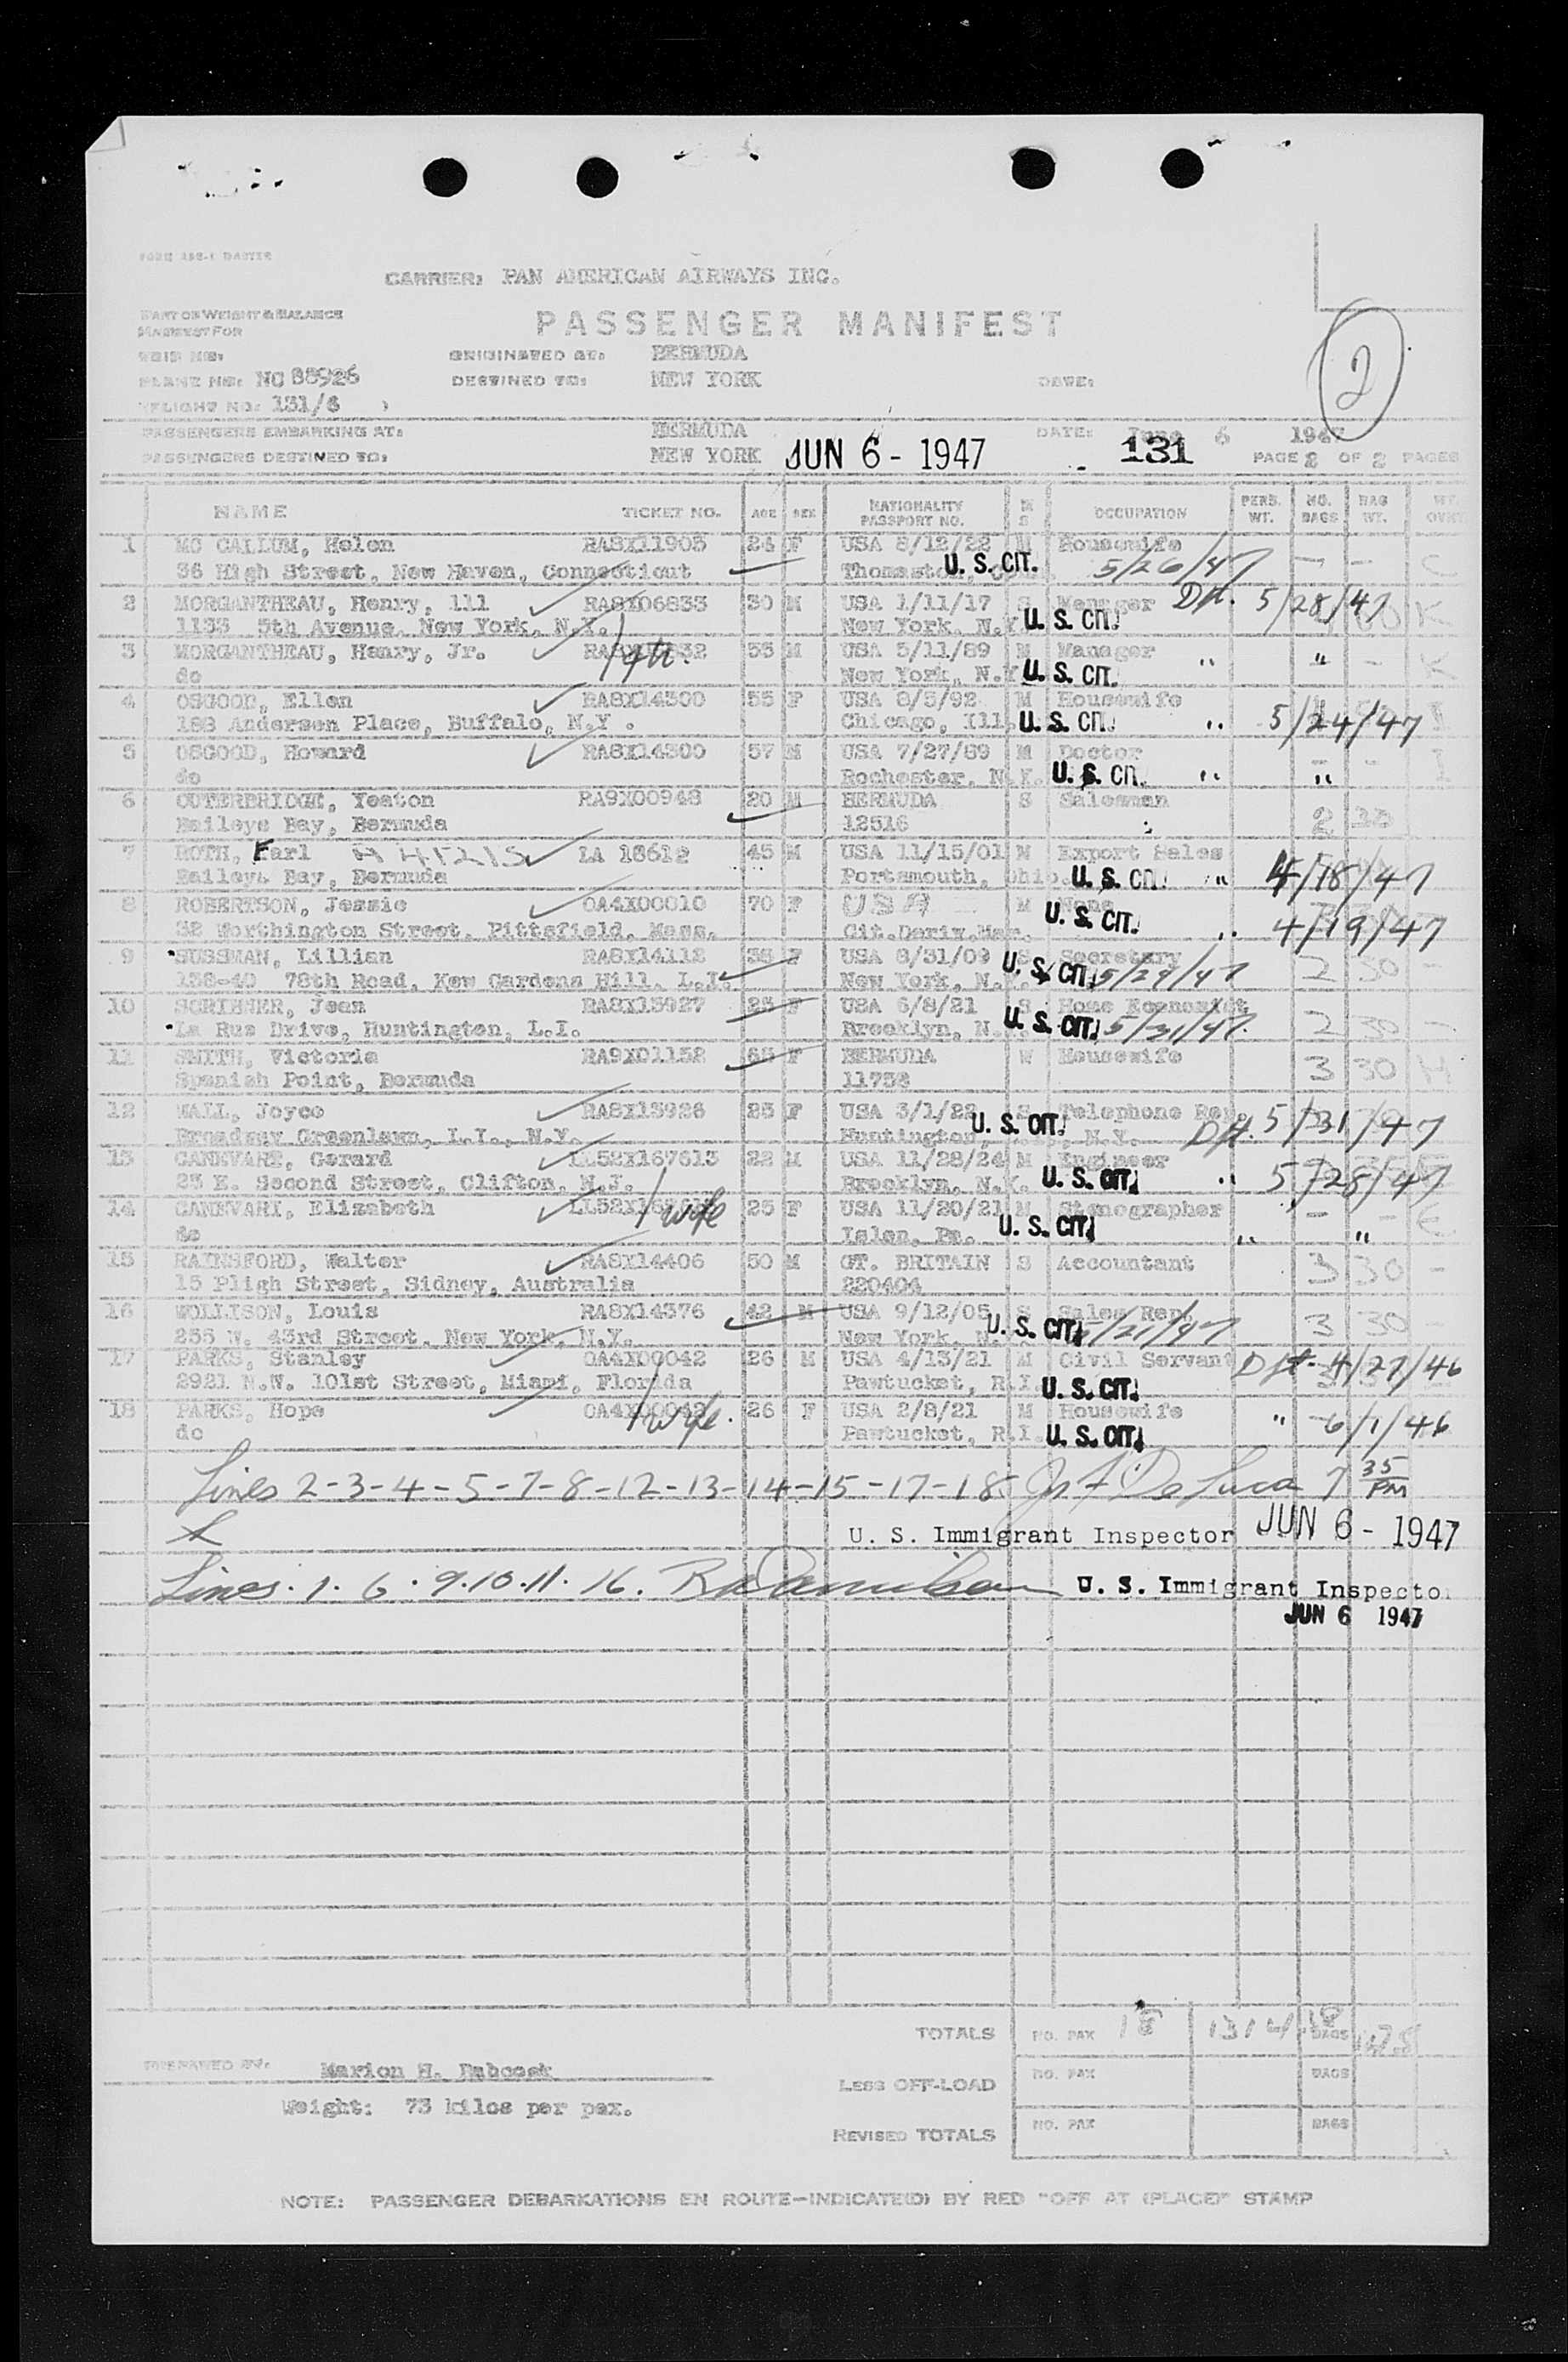 FORM ABS-1 MASTER
CARRIER: PAN AMERICAN AIRWAYS INC.
PART OF WEIGHT & BALANCE
MANIFEST FOR
PASSENGER MANIFEST
2
TRIP NO: ORIGINATED AT: BERMUDA
PLANE NO: NC 88926 DESTINED TO: NEW YORK DATE:
FLIGHT NO: 131/6
PASSENGERS EMBARKING AT: BERMUDA DATE: June 6 1947
PASSENGERS DESTINED TO: NEW YORK JUN 6 - 1947 131 PAGE 2 OF 2 PAGES
NAME TICKET NO. AGE SEX NATIONALITY PASSPORT NO. M S OCCUPATION PERS. WT. NO. BAGS BAG WT. WT. OVER
1 MC CALLUM, Helen RA8X11903 24 F USA 8/12/22 M Housewife
36 High Street, New Haven, Connecticut Thomaston, U. S. CIT. 5/26/47 - - C
2 MORGANTHEAU, Henry, 111 RA8X06833 30 M USA 1/11/17 S Manager Dpt. 5/28/47 K
1133 5th Avenue, New York, N.Y. New York, N.Y. U. S. CIT.
3 MORGANTHEAU, Henry, Jr. 55 M USA 5/11/89 M Manager " " - K
do New York, N.Y. U. S. CIT.
4 OSGOOD, Ellen RA8X14300 55 F USA 8/5/92 M Housewife
188 Andersen Place, Buffalo, N.Y. Chicago, Ill. U. S. CIT. " 5/24/47 I
5 OSGOOD, Howard RA8X14300 57 M USA 7/27/89 M Doctor - - I
do Rochester, N.Y. U. S. CIT. " "
6 OUTERBRIDGE, Yeaton RA9X00948 20 M BERMUDA S Salesman
Baileys Bay, Bermuda 12516 2 33
7 ROTH, Earl LA 18612 45 M USA 11/15/01 M Export Sales
Baileys Bay, Bermuda Portsmouth, Ohio. U. S. CIT. " 4/18/47
8 ROBERTSON, Jessie OA4X00010 70 F USA M None
32 Worthington Street, Pittsfield, Mass. Cit.Deriv.Mar. U. S. CIT. " 4/19/47
9 SUSSMAN, Lillian RA8X14112 38 F USA 8/31/09 S Secretary
138-40 78th Road, Kew Gardens Hill, L.I. New York, N.Y. U. S. CIT. 5/29/47 2 30 -
10 SCRIBNER, Jean RA8X13927 25 F USA 6/8/21 S Home Economist
La Rue Drive, Huntington, L.I. Brooklyn, N. U. S. CIT. 5/31/47. 2 30 -
11 SMITH, Victoria RA9X01152 68 F BERMUDA W Housewife
Spanish Point, Bermuda 11738 3 30 H
12 WALL, Joyce RA8X13926 25 F USA 3/1/22 S Telephone Rep.
Broadway Greenlawn, L.I., N.Y. Huntington, N.Y. U. S. CIT. Dpt. 5/31/47
13 CANEVARI, Gerard LL52X167613 22 M USA 11/28/24 M Engineer
25 E. Second Street, Clifton, N.J. Brooklyn, N.Y. U. S. CIT. " 5/28/47
14 CANEVARI, Elizabeth wife 25 F USA 11/20/21 M Stenographer - - E
do U. S. CIT. " "
15 RAINSFORD, Walter RA8X14406 50 M GT. BRITAIN S Accountant
15 Pligh Street, Sidney, Australia 220404 3 30 -
16 WOLLISON, Louis RA8X14376 42 M USA 9/12/05 S Sales Rep.
255 W. 43rd Street, New York, N.Y. New York, N. U. S. CIT. 5/21/47 3 30 -
17 PARKS, Stanley OA4X00042 26 M USA 4/13/21 M Civil Servant Dpt - 4/27/46
2921 N.W. 101st Street, Miami, Florida Pawtucket, R.I. U. S. CIT.
18 PARKS, Hope OA4X00042 wife. 26 F USA 2/8/21 M Housewife " 6/1/46
do Pawtucket, R.I. U. S. CIT.
Lines 2-3-4-5-7-8-12-13-14-15-17-18 De Luca 7 35 PM
U. S. Immigrant Inspector JUN 6 - 1947
Lines. 1. 6. 9.10.11. 16. U. S. Immigrant Inspector
JUN 6 1947
TOTALS NO. PAX 18 1314 BAGS
PREPARED BY: Marion H. Babcock
LESS OFF-LOAD NO. PAX BAGS
Weight: 73 kilos per pax.
REVISED TOTALS NO. PAX BAGS
NOTE: PASSENGER DEBARKATIONS EN ROUTE-INDICATE(D) BY RED "OFF AT (PLACE)" STAMP